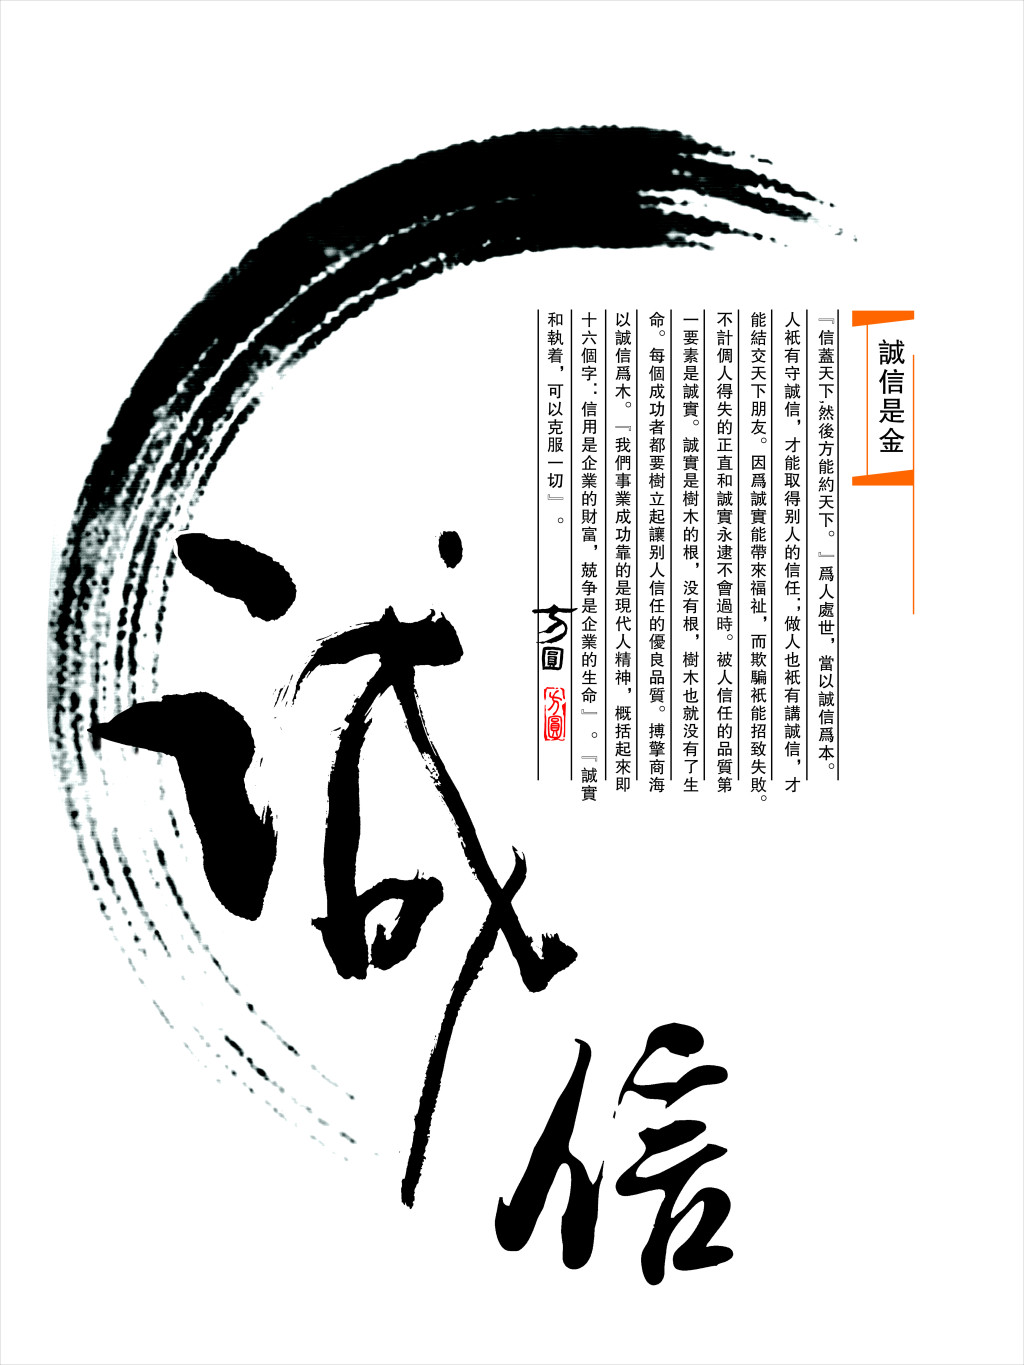 誠信是金
『信蓋天下,然後方能約天下。』爲人處世，當以誠信爲本。
人衹有守誠信，才能取得别人的信任；做人也衹有講誠信，才
能結交天下朋友。因爲誠實能帶來福祉，而欺騙衹能招致失敗。
不計倜人得失的正直和誠實永逮不會過時。被人信任的品質第
一要素是誠實。誠實是樹木的根，没有根，樹木也就没有了生
命。每個成功者都要樹立起讓别人信任的優良品質。搏擎商海
以誠信爲木。『我們事業成功靠的是現代人精神，概括起來即
十六個字：信用是企業的財富，兢争是企業的生命』。『誠實
和執着，可以克服一切』。
方圓
方圓
誠
信